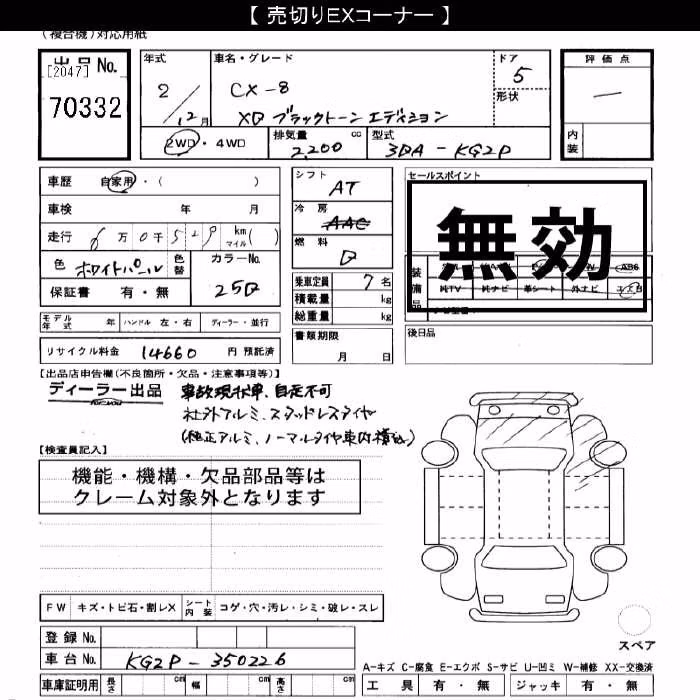 【 売切りEXコーナー 】
(複合機)対応用紙
出品No.
[2047]
70332
年式 2 / 12 月
車名・グレード
CX-8
XD ブラックトーンエディション
ドア 5
形状
評価点
内装
2WD・4WD
排気量 2,200 cc
型式 3DA-KG2P
車歴 自家用・( )
車検 年 月
走行 6 万 0 千 5 2 9 km マイル ( )
色 ホワイトパール 色替 カラーNo. 25D
保証書 有・無
モデル年式 年 ハンドル 左・右 ディーラー・並行
リサイクル料金 14660 円 預託済
シフト AT
冷房 AAC
燃料 D
乗車定員 7 名
積載量 kg
総重量 kg
書類期限
月 日
セールスポイント
無効
装備品
純TV 純ナビ 革シート 外ナビ エアB
後日品
【出品店申告欄(不良箇所・欠品・注意事項等)】
ディーラー出品
事故現状車、自走不可
社外アルミ、スタッドレスタイヤ
(純正アルミ、ノーマルタイヤ車内積込)
【検査員記入】
機能・機構・欠品部品等は
クレーム対象外となります
FW キズ・トビ石・割レX シート内装 コゲ・穴・汚レ・シミ・破レ・スレ
登録No.
車台No. KG2P-350226
車庫証明用 長さ cm 幅 cm 高さ cm
スペア
A-キズ C-腐食 E-エクボ S-サビ U-凹ミ W-補修 XX-交換済
工具 有・無 ジャッキ 有・無